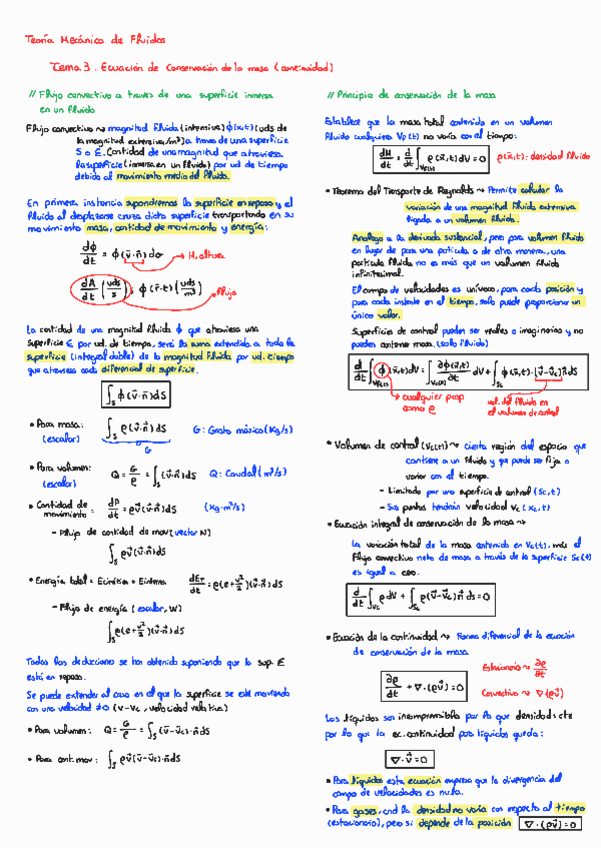 Teoría Mecánica de Fluidos
Tema 3. Ecuación de Conservación de la masa (continuidad)
// Flujo convectivo a traves de una superficie inmersa
en un fluido
Flujo convectivo ~> magnitud fluida (intensiva) ϕ(x,t) (uds de
la magnitud extensiva/m³) a traves de una superficie
S o Σ. Cantidad de una magnitud que atraviesa
la superficie (inmersa en un fluido) por ud de tiempo
debido al movimiento medio del fluido.
En primera instancia supondremos la superficie en reposo y el
fluido al desplazarse cruza dicha superficie transportando en su
movimiento masa, cantidad de movimiento y energía:
dϕ/dt = ϕ(v̄·n̄)dσ → H. altura
dA/dt (uds/s) ; ϕ(v̄·t)(uds/m²) → flujo
La cantidad de una magnitud fluida ϕ que atraviesa una
superficie Σ por ud. de tiempo, será la suma extendida a toda la
superficie (integral doble) de la magnitud fluida por ud. tiempo
que atraviesa cada diferencial de superficie.
∫s ϕ(v̄·n̄)dS
• Para masa: ∫s ρ(v̄·n̄)dS G: Gasto másico (Kg/s)
(escalar) G
• Para volumen: Q = G/ρ = ∫s (v̄·n̄)dS Q: Caudal (m³/s)
(escalar)
• Cantidad de movimiento: dP/dt = ρv̄(v̄·n̄)dS (Kg·m²/s)
- Flujo de cantidad de mov (vector N)
∫s ρv̄(v̄·n̄)dS
• Energía total = Ecinética + Einterna dET/dt = ρ(e+v²/2)(v̄·n̄)dS
- Flujo de energía (escalar, W)
∫s ρ(e+v²/2)(v̄·n̄)dS
Todas las deducciones se han obtenido suponiendo que la sup. Σ
está en reposo.
Se puede extender al caso en el que la superficie se esté moviendo
con una velocidad ≠0 (v-vc, velocidad relativa)
• Para volumen: Q = G/ρ = ∫s (v̄-v̄c)·n̄dS
• Para cant. mov: ∫s ρv̄(v̄-v̄c)·n̄dS
// Principio de conservación de la masa
Establece que la masa total contenida en un volumen
fluido cualquiera VF(t) no varía con el tiempo:
dM/dt = d/dt ∫VF(t) ρ(x̄,t)dV = 0 ρ(x̄,t): densidad fluido
• Teorema del Transporte de Reynolds ~> Permite calcular la
variación de una magnitud fluida extensiva
ligada a un volumen fluido.
Análoga a la derivada sustancial, pero para volumen fluido
en lugar de para una partícula o de otra manera, una
partícula fluida no es más que un volumen fluido
infinitesimal.
El campo de velocidades es unívoco, para cada posición y
para cada instante en el tiempo, solo puede proporcionar un
único valor.
Superficies de control pueden ser reales o imaginarias y no
pueden contener masa. (solo fluido)
d/dt ∫VF(t) ϕ(x̄,t)dV = ∫Vc(t) ∂ϕ(x̄,t)/∂t dV + ∫Sc ϕ(x̄,t)·[(v̄-v̄c)]n̄dS
→ cualquier prop como ρ
vel. del fluido en el volumen de control
• Volumen de control (Vc(t)) ~> cierta región del espacio que
contiene a un fluido y que puede ser fija o
variar con el tiempo.
- Limitado por una superficie de control (Sc,t)
- Sus puntos tendrán velocidad Vc(x,t)
• Ecuación integral de conservación de la masa ~>
La variación total de la masa contenida en Vc(t), más el
flujo convectivo neto de masa a través de la superficie Sc(t)
es igual a cero.
d/dt ∫Vc ρdV + ∫Sc ρ(v̄-v̄c)n̄ds = 0
• Ecuación de la continuidad ~> Forma diferencial de la ecuación
de conservación de la masa
∂ρ/∂t + ∇·(ρv̄) = 0 Estacionario ~> ∂ρ/∂t
Convectivo ~> ∇(ρv̄)
Los líquidos son incompresibles por lo que densidad = cte
por lo que la ec. continuidad para líquidos queda:
∇·v̄ = 0
• Para líquidos esta ecuación expresa que la divergencia del
campo de velocidades es nula.
• Para gases, cnd la densidad no varía con respecto al tiempo
(estacionario), pero si depende de la posición ∇·(ρv̄) = 0